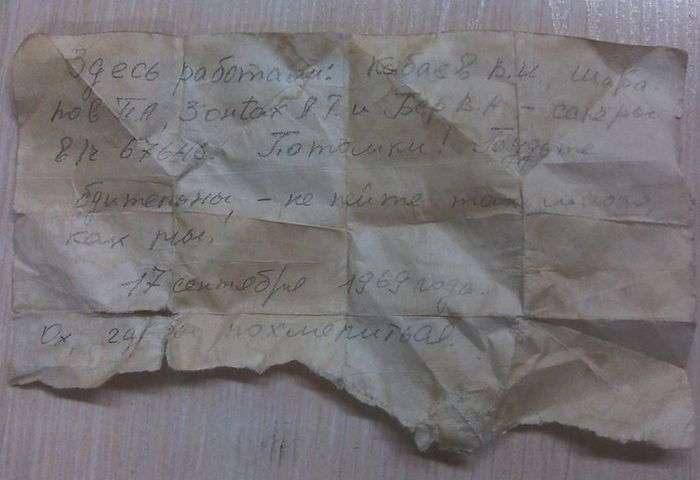 Здесь работали: В.И. Шара
пов П.А, Зонтаг Я.Т. и Бер В.А - сапёры
в/ч 67646. Потомки! Будьте
бдительны - не пейте так много,
как мы!
17 сентября 1969 года.
Ох, похмелиться!